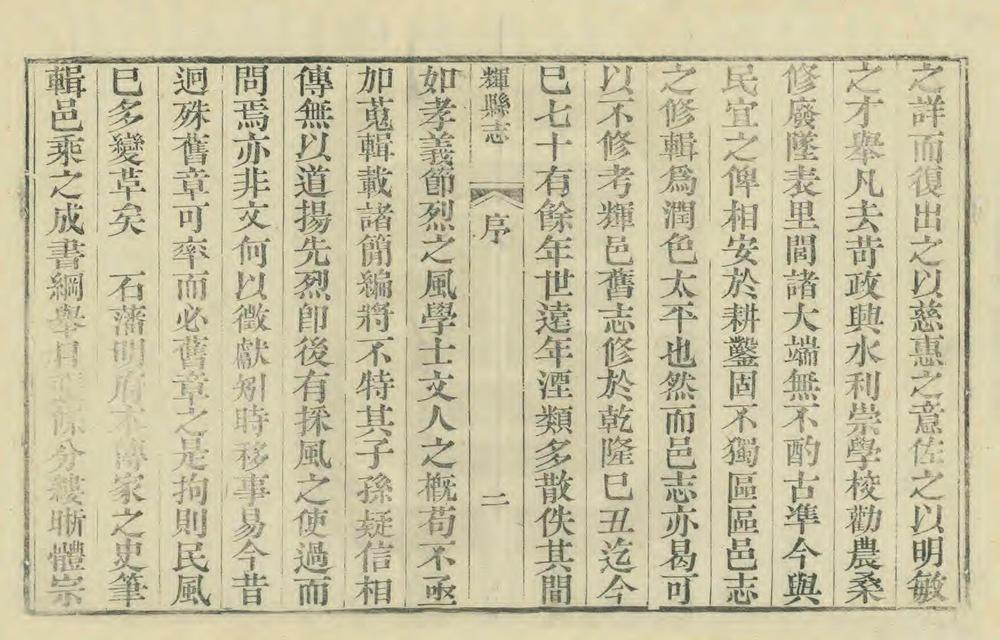 之詳而復出之以慈惠之意佐之以明敏
之才舉凡去苛政興水利崇學校勸農桑
修廢墜表里閭諸大端無不酌古凖今與
民宜之俾相安於耕鑿固不獨區區邑志
之修輯爲潤色太平也然而邑志亦曷可
以不修考輝邑舊志修於乾隆己丑迄今
巳七十有餘年世遠年湮類多散佚其間
輝縣志 序 二
如孝義節烈之風學士文人之概苟不亟
加蒐輯載諸簡編將不特其子孫疑信相
傳無以道揚先烈卽後有採風之使過而
問焉亦非文何以徵獻矧時移事易今昔
迥殊舊章可率而必舊章之是拘則民風
巳多變革矣 石藩明府本傳家之史筆
輯邑乘之成書綱舉目條分縷晰體宗